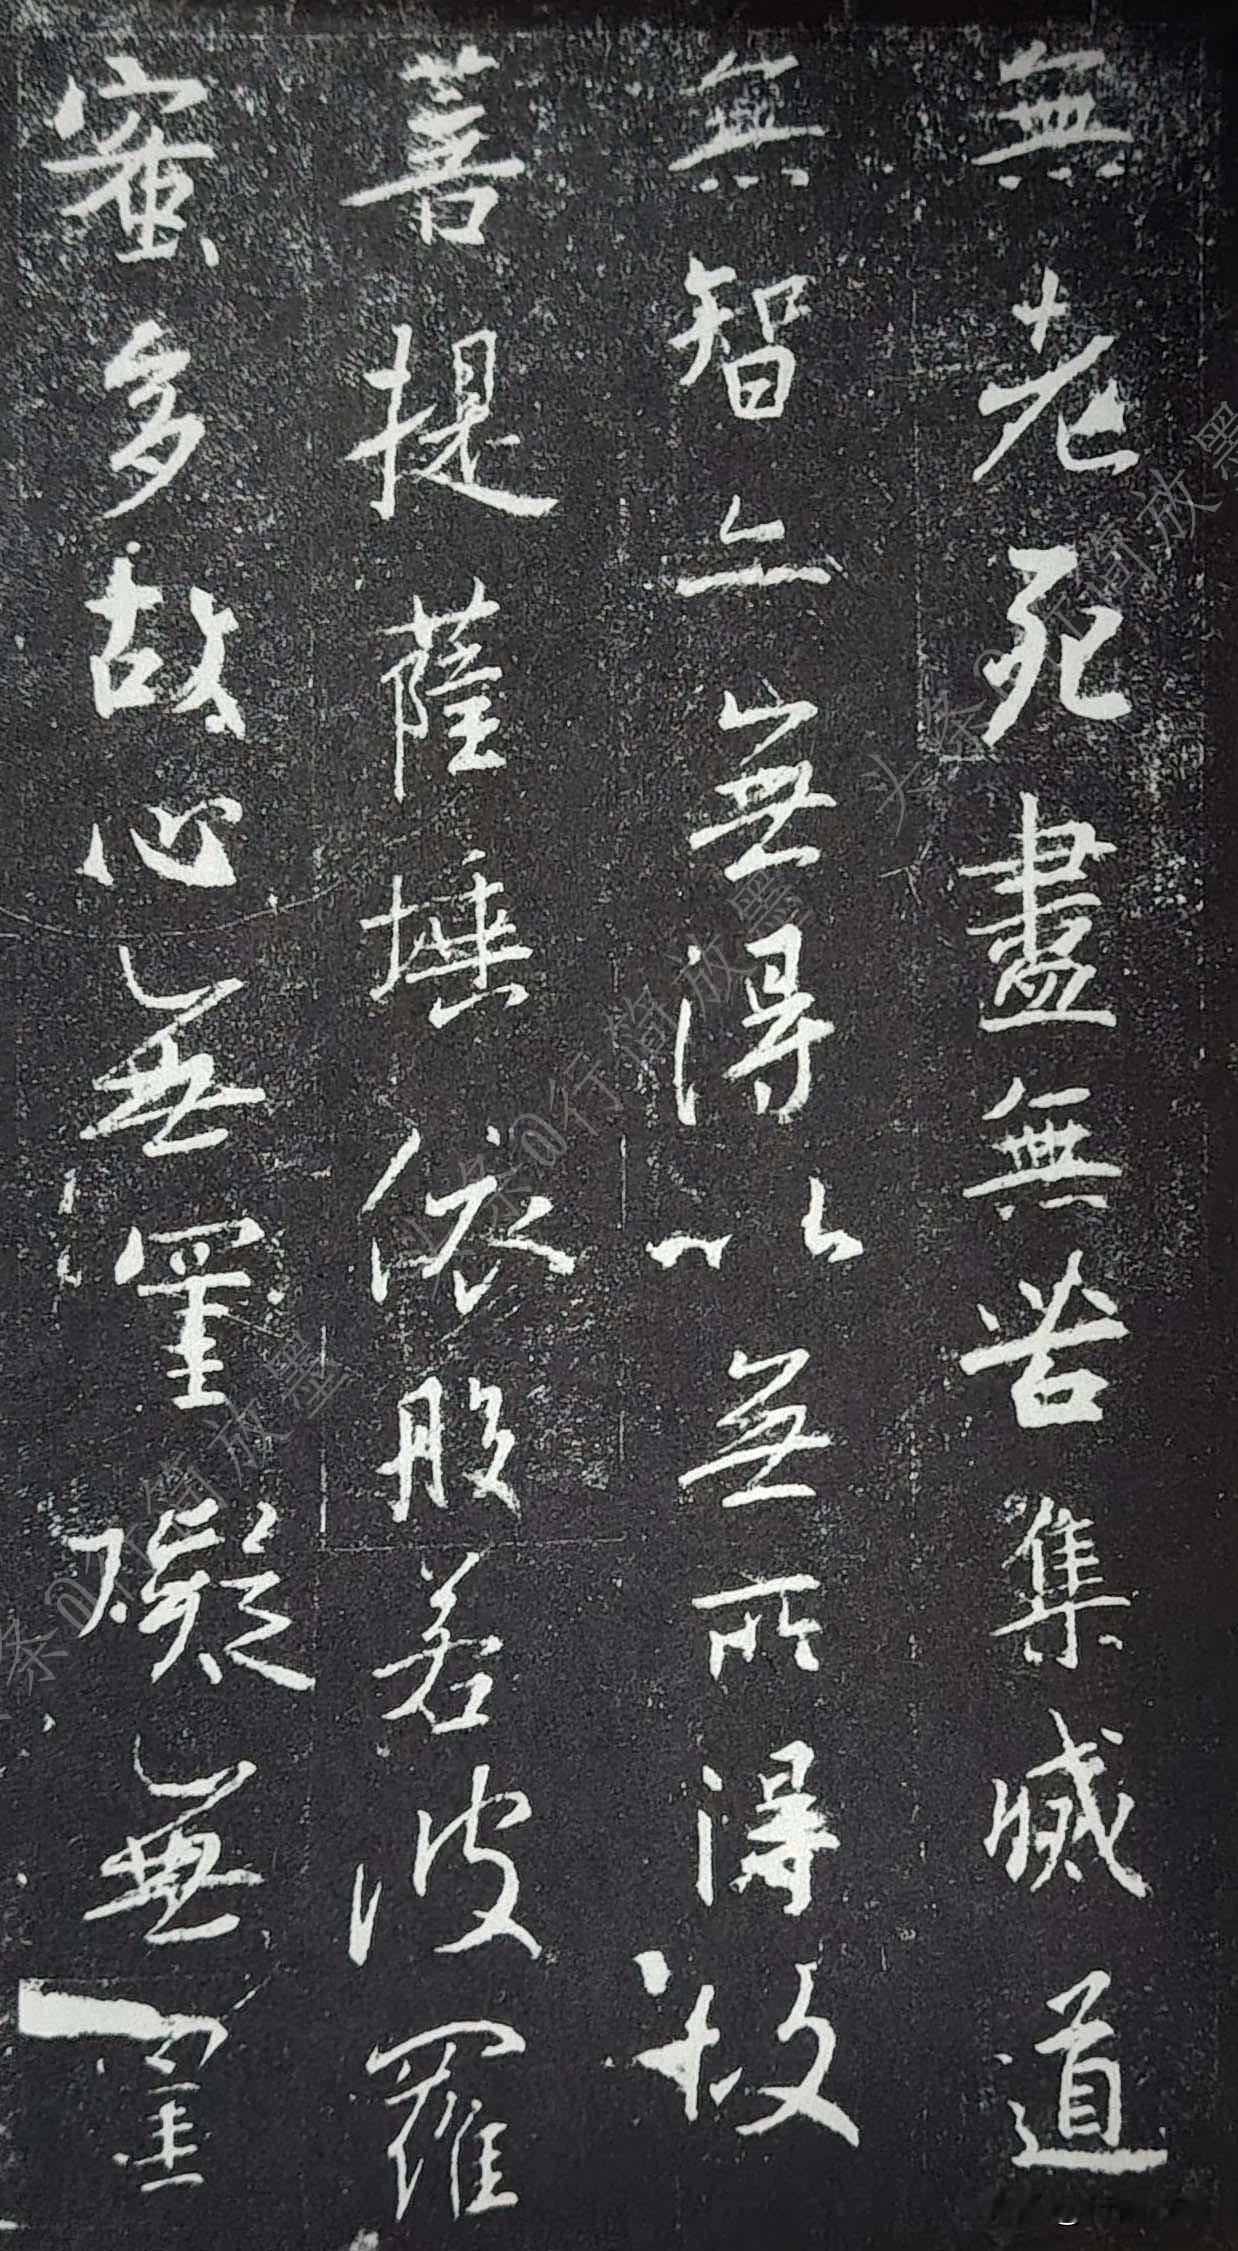 無老死盡無苦集滅道
無智亦無得以無所得故
菩提薩埵依般若波羅
蜜多故心無罣礙無罣
头条@行简放墨